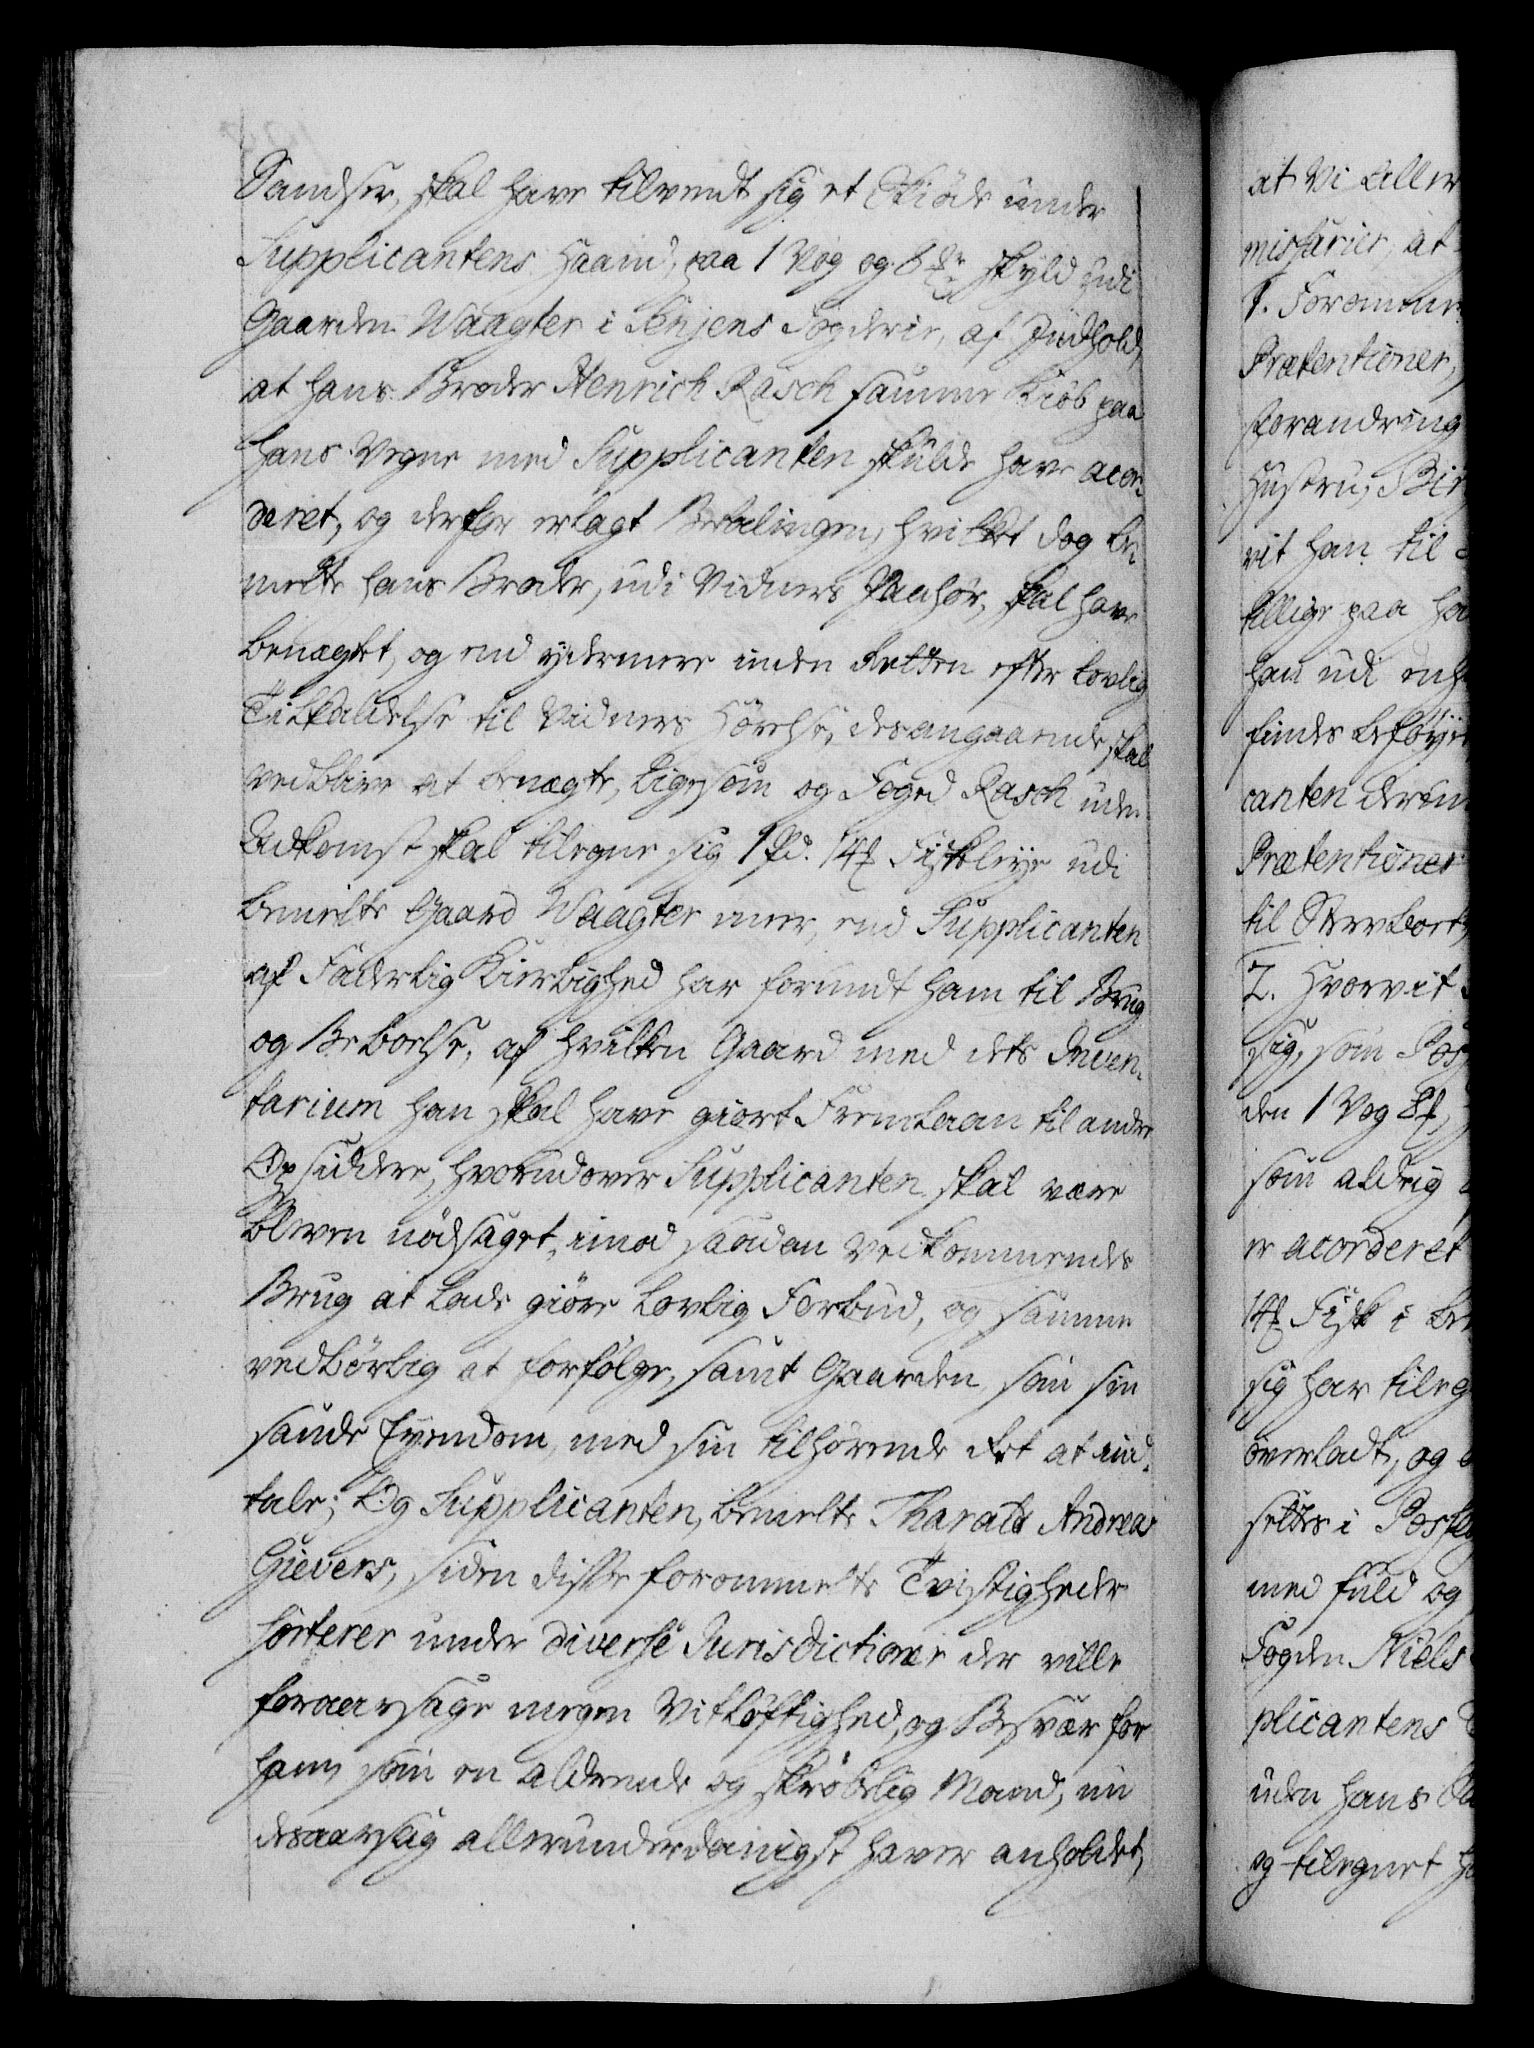 Sandser, skal have tilvendt sig et Skiøde under
Supplicantens Haand, paa 1 Vog og 6 skyld udi
Gaarden Waagter i Senjens Fogderie, af Indhold,
at hans Broder Henrich Rasch samme Kiøb paa
hans Vegne med Supplicanten skulde have acor-
deret, og derfor erlagt Betalingen, hvilket dog be-
melte hans Broder, udi Vidners Paahør, skal have
benægtet, og end ydermere inden Retten efter lovlig
Tilkaldelse til Vidners Hørelse, desangaaende skal
vedblive at benægte, ligesom og Foged Rasch uden
Adkomst skal tilegne sig 1 Pd. 14 Fiskeleye udi
bemelte Gaard Waagter meer, end Supplicanten
af Faderlig Kierlighed har forundt ham til Brug
og Beboelse, af hvilken Gaard med dets Inven-
tarium han skal have giort Fremlaan til andre
Opsiddere, hvorudover Supplicanten skal være
bleven nødsaget, imod saadan Vedkommendes
Brug at lade giøre lovlig Forbud, og samme
vedbørlig at forfølge, samt Gaarden, som sin
sande Eyendom, med sin tilhørende Ret at ind-
tale; Og Supplicanten, bemelte Tharald Andreas
Gievers, siden disse forommelte Tvistigheder
sorterer under diverse Jurisdictioner der ville
foraarsage megen Vitløftighed, og Besvær for
ham som en aldrende og skrøbelig Mand, nu
desaarsag allerunderdanigst haver anholdet,
at Vi Aller
missarier, at
1. Forommel
Prætentioner,
forandring
Hustru,
vit han til
tillige paa ha
han udi
findes beføyet
canten derim
Prætentioner
til Stervboet
2. Hvorvit
sig, som
den 1 Vog
som aldrig
er acorderet
14 Fisk i be
sig har tileg
overladt, og
settes i
med fuld og
Fogden Niels
plicantens
uden hans
og tilegnet h